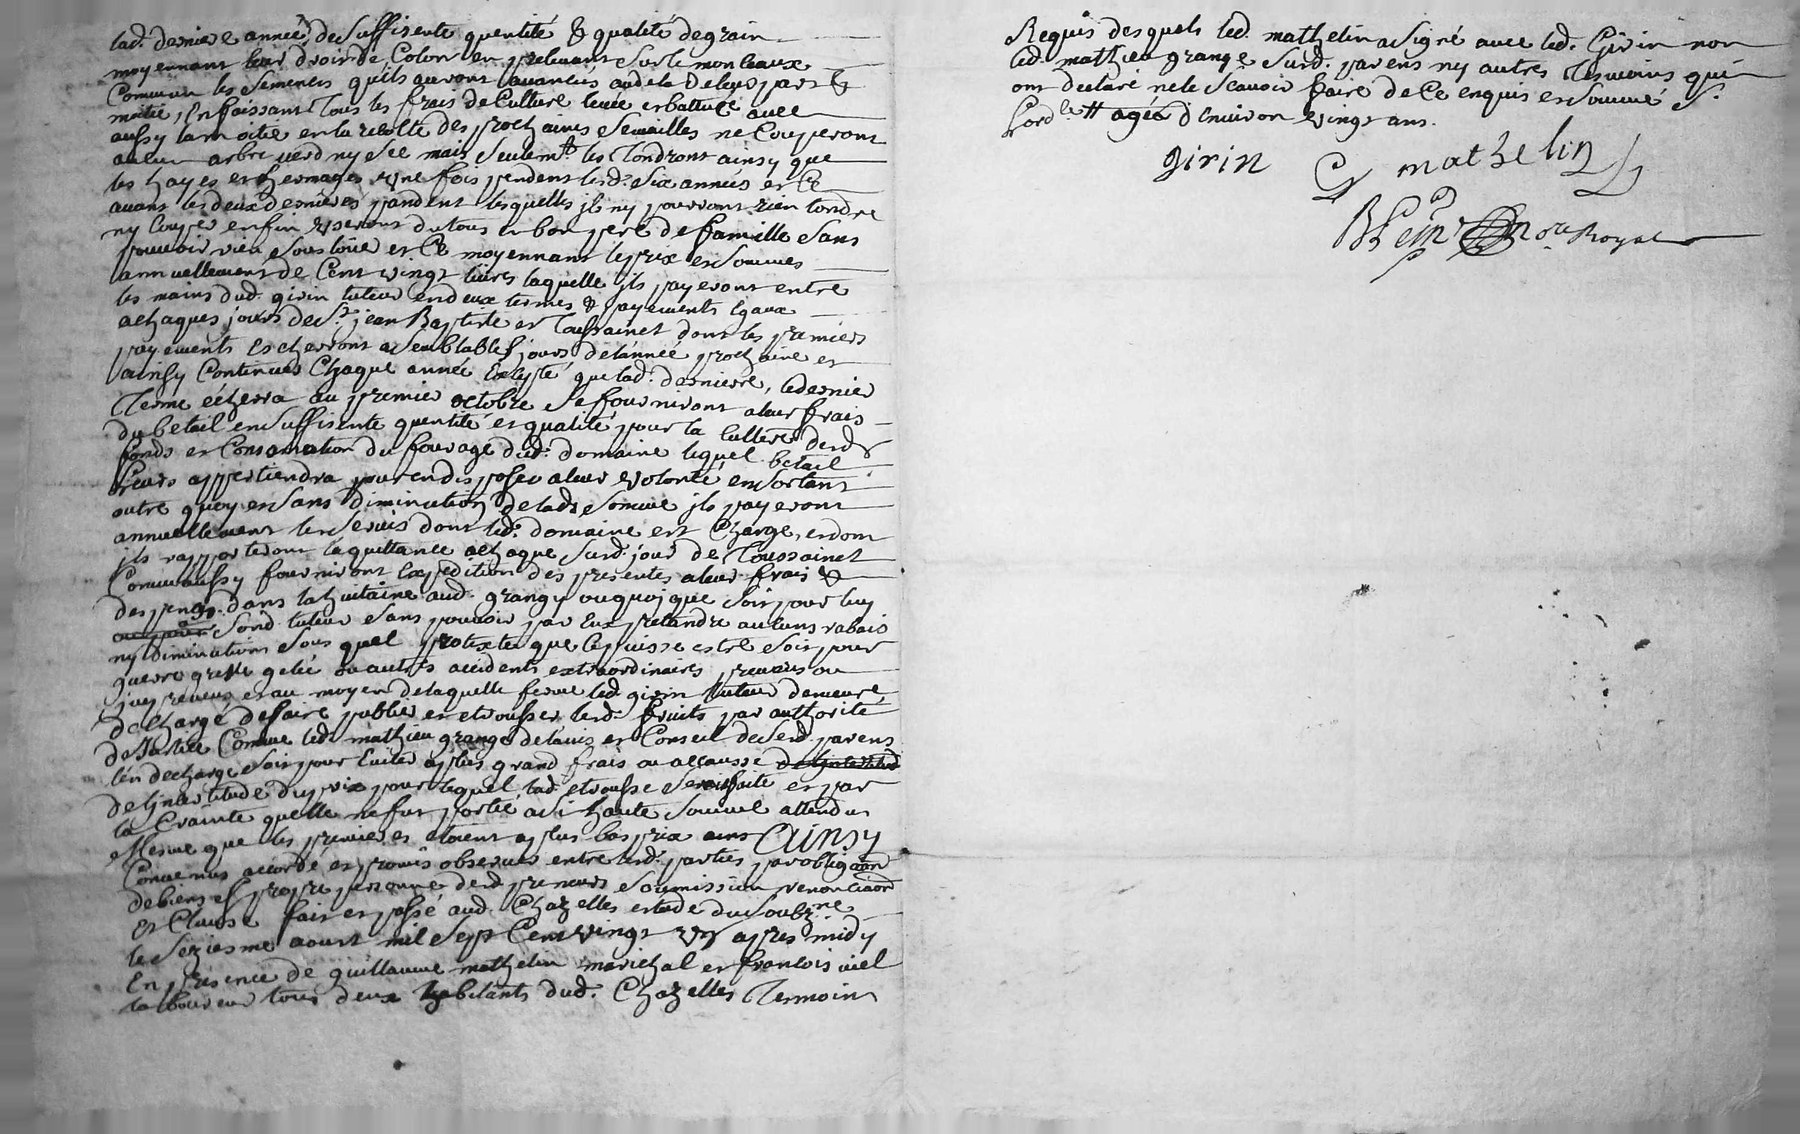 lad. derniere année de suffisente quentité & qualité de grain
moyennant leur droit de Colon en prelevant sur le monceaux
Commun les semences quils auront avancées audela de leur part &
moitié, En faissant tous les frais de Culture levée et batture avec
aussy la moitie en la recolte des prochaines semailles ne Couperont
aucun arbre verd ny sec mais seulemt. les tondront ainsy que
les hayes et une fois pendent lesd. six années et Ce
avant les deux dernieres pandent lesquelles jls ny pourront rien tondre
ny Couper enfin useront du tout en bon pere de famille sans
pouvoir rien sous loüer et Ce moyennant le prix et sommes
annuellement de Cent vingt livres laquelle jls payeront entre
les mains dud. girin tuteur en deux termes & payements Egaux
achaques jours de St. jean Baptiste et Toussainct dont les premiers
payements escherront a semblables jours de lannée prochaine et
ainsy Continuer Chaque année Excepté que lad. derniere, le dernier
Terme écherra au premier octobre se fourniront a leur frais
du betail en suffisente quentité et qualité pour la Culture desd.
fonds et Consomation du fourage dud. domaine lequel betail
leurs appertiendra pour en disposer a leur volonté en sortant
outre quoy et sans diminution de lad. somme jls payeront
annuellement les servis dont led. domaine est Chargé, et dont
jls rapporteront la quittance achaque surd. jour de Toussainct
Comme aussy fourniront Expedition des presentes a leur frais &
despens dans la huitaine aud. grangy ou quoi que soit pour luy
sond. tuteur sans pouvoir par Eux pretandre aucuns rabais
ny diminutions sous quel protexte que Ce puisse estre soit pour
guerre gresle gelée ou autres accidents extraordinaires preveus ou
jmpreveus et au moyen de laquelle ferme led. girin tuteur demeure
dechargé de faire publier et etrousser lesd. fruits par authorité
de Justice Comme led. mathieu grange de lavis et Conseil de sesd. parens
len decharge soit pour Eviter a plus grand frais ou a causse
de lincertitude du prix pour lequel lad. etrousse seroit faite et par
la Crainte quelle ne fut portée a si haute somme attendu
Mesme que les premieres etoient a plus bas prix Ainsy
Convenus accordé et promis observer entre lesd. parties par obligaon
de biens et propre personne desd. preneurs soumission renonciaon
et Clause fait et passé aud. Chazelles estude du soubzne.
le seziesme aoust mil sept Cent vingt un apres midy
En presence de guillaume mathelin marichal et francois viel
laboureur tous deux habitants dud. Chazelles Termoins
Requis desquels led. mathelin a signé avec led. Girin non
led. mathieu grange surd. parens ny autres Tesmoins qui
ont declaré ne le scavoir faire de Ce enquis et sommé S.
lord. # agéé d'Environ vingt ans.
girin G mathelin
not. Royal